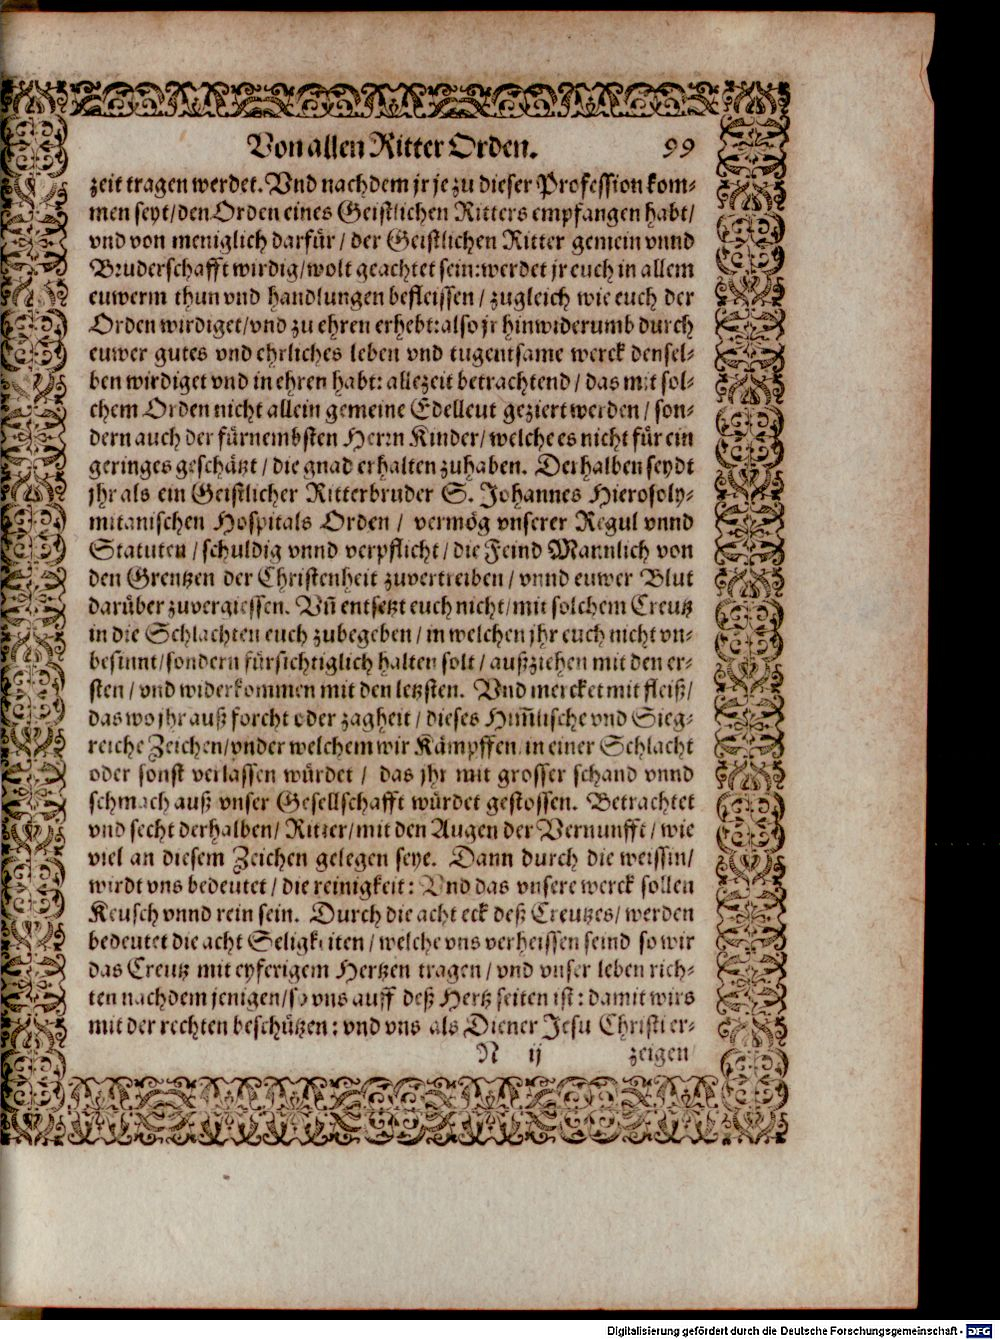 Von allen Ritter Orden. 99
zeit tragen werdet. Vnd nachdem jr je zu dieser Profession kom-
men seyt/ den Orden eines Geistlichen Ritters empfangen habt/
vnd von meniglich darfür / der Geistlichen Ritter gemein vnnd
Bruderschafft wirdig/ wolt geachtet sein: werdet jr euch in allem
euwerm thun vnd handlungen befleissen / zugleich wie euch der
Orden wirdiget/ vnd zu ehren erhebt: also jr hinwiderumb durch
euwer gutes vnd ehrliches leben vnd tugentsame werck densel-
ben wirdiget vnd in ehren habt: allezeit betrachtend / das mit sol-
chem Orden nicht allein gemeine Edelleut geziert werden / son-
dern auch der fürnembsten Herrn Kinder/ welche es nicht für ein
geringes geschätzt / die gnad erhalten zuhaben. Derhalben seydt
jhr als ein Geistlicher Ritterbruder S. Johannes Hierosoly-
mitanischen Hospitals Orden / vermög vnserer Regul vnnd
Statuten / schuldig vnnd verpflicht / die Feind Mannlich von
den Grentzen der Christenheit zuvertreiben / vnnd euwer Blut
darüber zuvergiessen. Vn̄ entsetzt euch nicht/ mit solchem Creutz
in die Schlachten euch zubegeben / in welchen jhr euch nicht vn-
besinnt/ sondern fürsichtiglich halten solt / außziehen mit den er-
sten / vnd widerkommen mit den letzsten. Vnd mercket mit fleiß/
das wo jhr auß forcht oder zagheit / dieses Him̄lische vnd Sieg-
reiche Zeichen/ vnder welchem wir Kämpffen/ in einer Schlacht
oder sonst verlassen würdet / das jhr mit grosser schand vnnd
schmach auß vnser Gesellschafft würdet gestossen. Betrachtet
vnd secht derhalben/ Ritter/ mit den Augen der Vernunfft / wie
viel an diesem Zeichen gelegen seye. Dann durch die weissin/
wirdt vns bedeutet / die reinigkeit: Vnd das vnsere werck sollen
Keusch vnnd rein sein. Durch die acht eck deß Creutzes/ werden
bedeutet die acht Seligkeiten / welche vns verheissen seind so wir
das Creutz mit eyferigem Hertzen tragen / vnd vnser leben rich-
ten nachdem jenigen/ so vns auff deß Hertz seiten ist: damit wirs
mit der rechten beschützen: vnd vns als Diener Jesu Christi er-
N ij zeigen
Digitalisierung gefördert durch die Deutsche Forschungsgemeinschaft - DFG